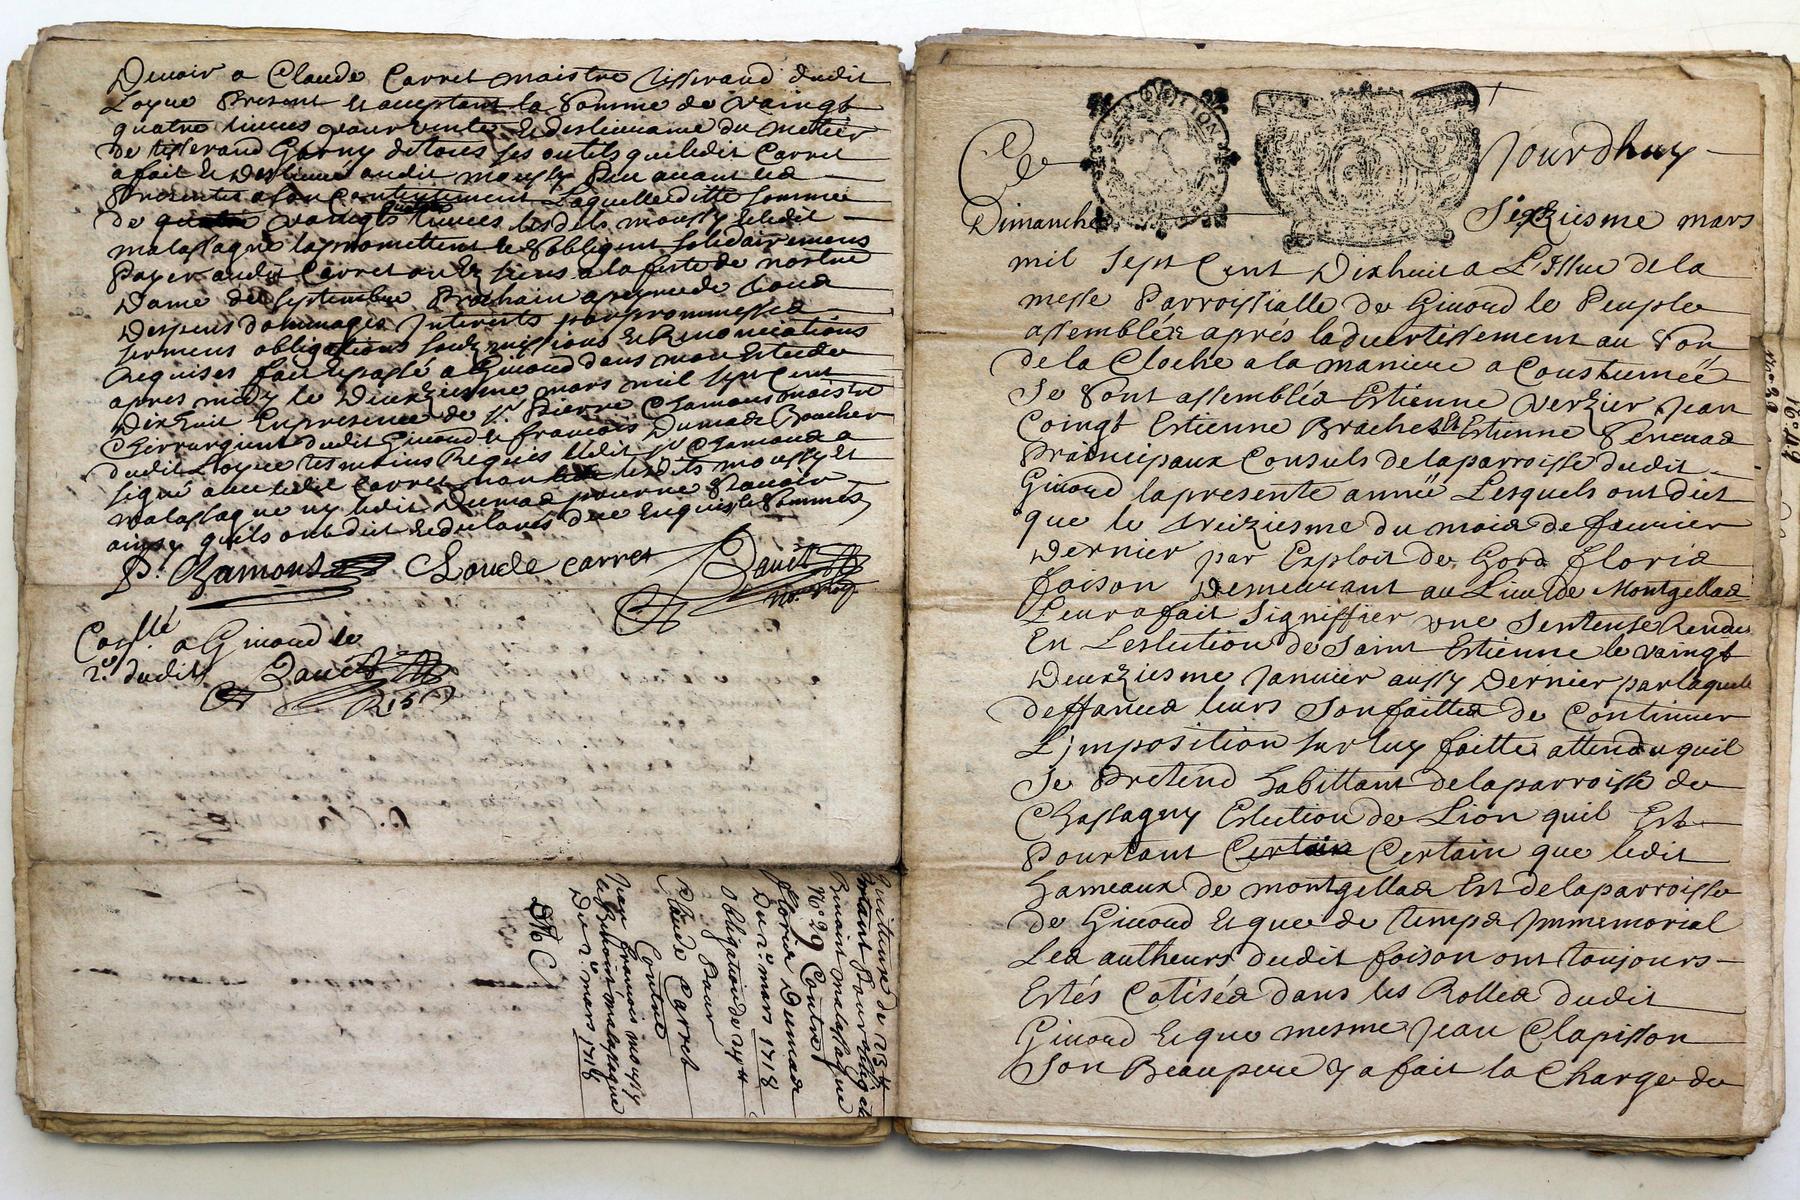 Devoir a Claude Carret maistre tisserand dudit
Loyre Present et acceptant la Somme de vaingt
quatre livres pour vente et deslivrance du metier
De tisserand Garny detous ses outils que ledit Carret
a fait et deslivré audit moussy peu avant led
Presentes a son Contentement Laquelle ditte somme
de quatre vaingt livres lesdits moussy et ledit
malassagne la promettent et Sobligent solidairement
Payer audit Carret ou es siens a la feste de nostre
Dame de Septembre Prochain apeyne de tous
Despens dommages Interests par prommesses
serment obligations soubzmissions et Renonciations
Requises fait et passé a Givord dans mon Estude
apres midy le Deuxziesme mars mil sept cent
Dixhuit En presence de Sr. Pierre Chamous maistre
Chirrurgien dudit Givord et francois Dumad Boucher
dudit Loyre tesmoins Requis ledit Sr Chamous a
signé avec ledit Carret non lesdits moussy et
malassagne ny ledit Dumad pour ne Scavoir
ainsy quils ont dit et declarés de ce Enquis et Sommés
P. Chamous Claude carret Bauët
no. Roy
Collé. a Givord le
2.e dudit Bauët
R 15 s
Ce Jourdhuy
GEN LION
Dimanche Sexziesme mars
mil Sept Cent Dixhuit a L'Issue de la
messe Parroissialle de Givord le Peuple
assemblée apres laduertissement au Son
de la Cloche a la maniere a Coustumeé
Se Sont assemblés Estienne Verzier Jean
Coingt Estienne Brachet Et Estienne Seneuas
Praincipaux Consuls de laparroisse dudit
Givord lapresente anneë Lesquels ont dit
que le treiziesme du mois de feurier
Dernier par Exploit de Gord Floris
foison Demeurant au Lieu de Montgellas
Leur a fait Signiffier une Sentense Rendue
En Leslection de Saint Estienne le vaingt
Deuxziesme Janvier aussy Dernier par laquelle
deffances leurs Son faittes de Continuer
L'jmposition sur luy faitte attendu quil
Se Pretend habittant de laparroisse de
Chassagny Eslection de Lion quil Est
Pourtant Certain Certain que ledit
hameaux de montgellas Est de laparroisse
de Givord Et que de temps Jmmemorial
Les autheurs dudit foison ont toujours
Estés Cotisés dans les Rolles dudit
Givord Et que mesme Jean Clapisson
Son Beaupere y a fait la Charge de
N.° 29 Contrel
floris Dumas
Du 2.e mars 1718
Obligation de 24 tt
Pour
Claude Carret
Contre
Jean francois moussy
et Benoist malassagne
Du 2.e mars 1718